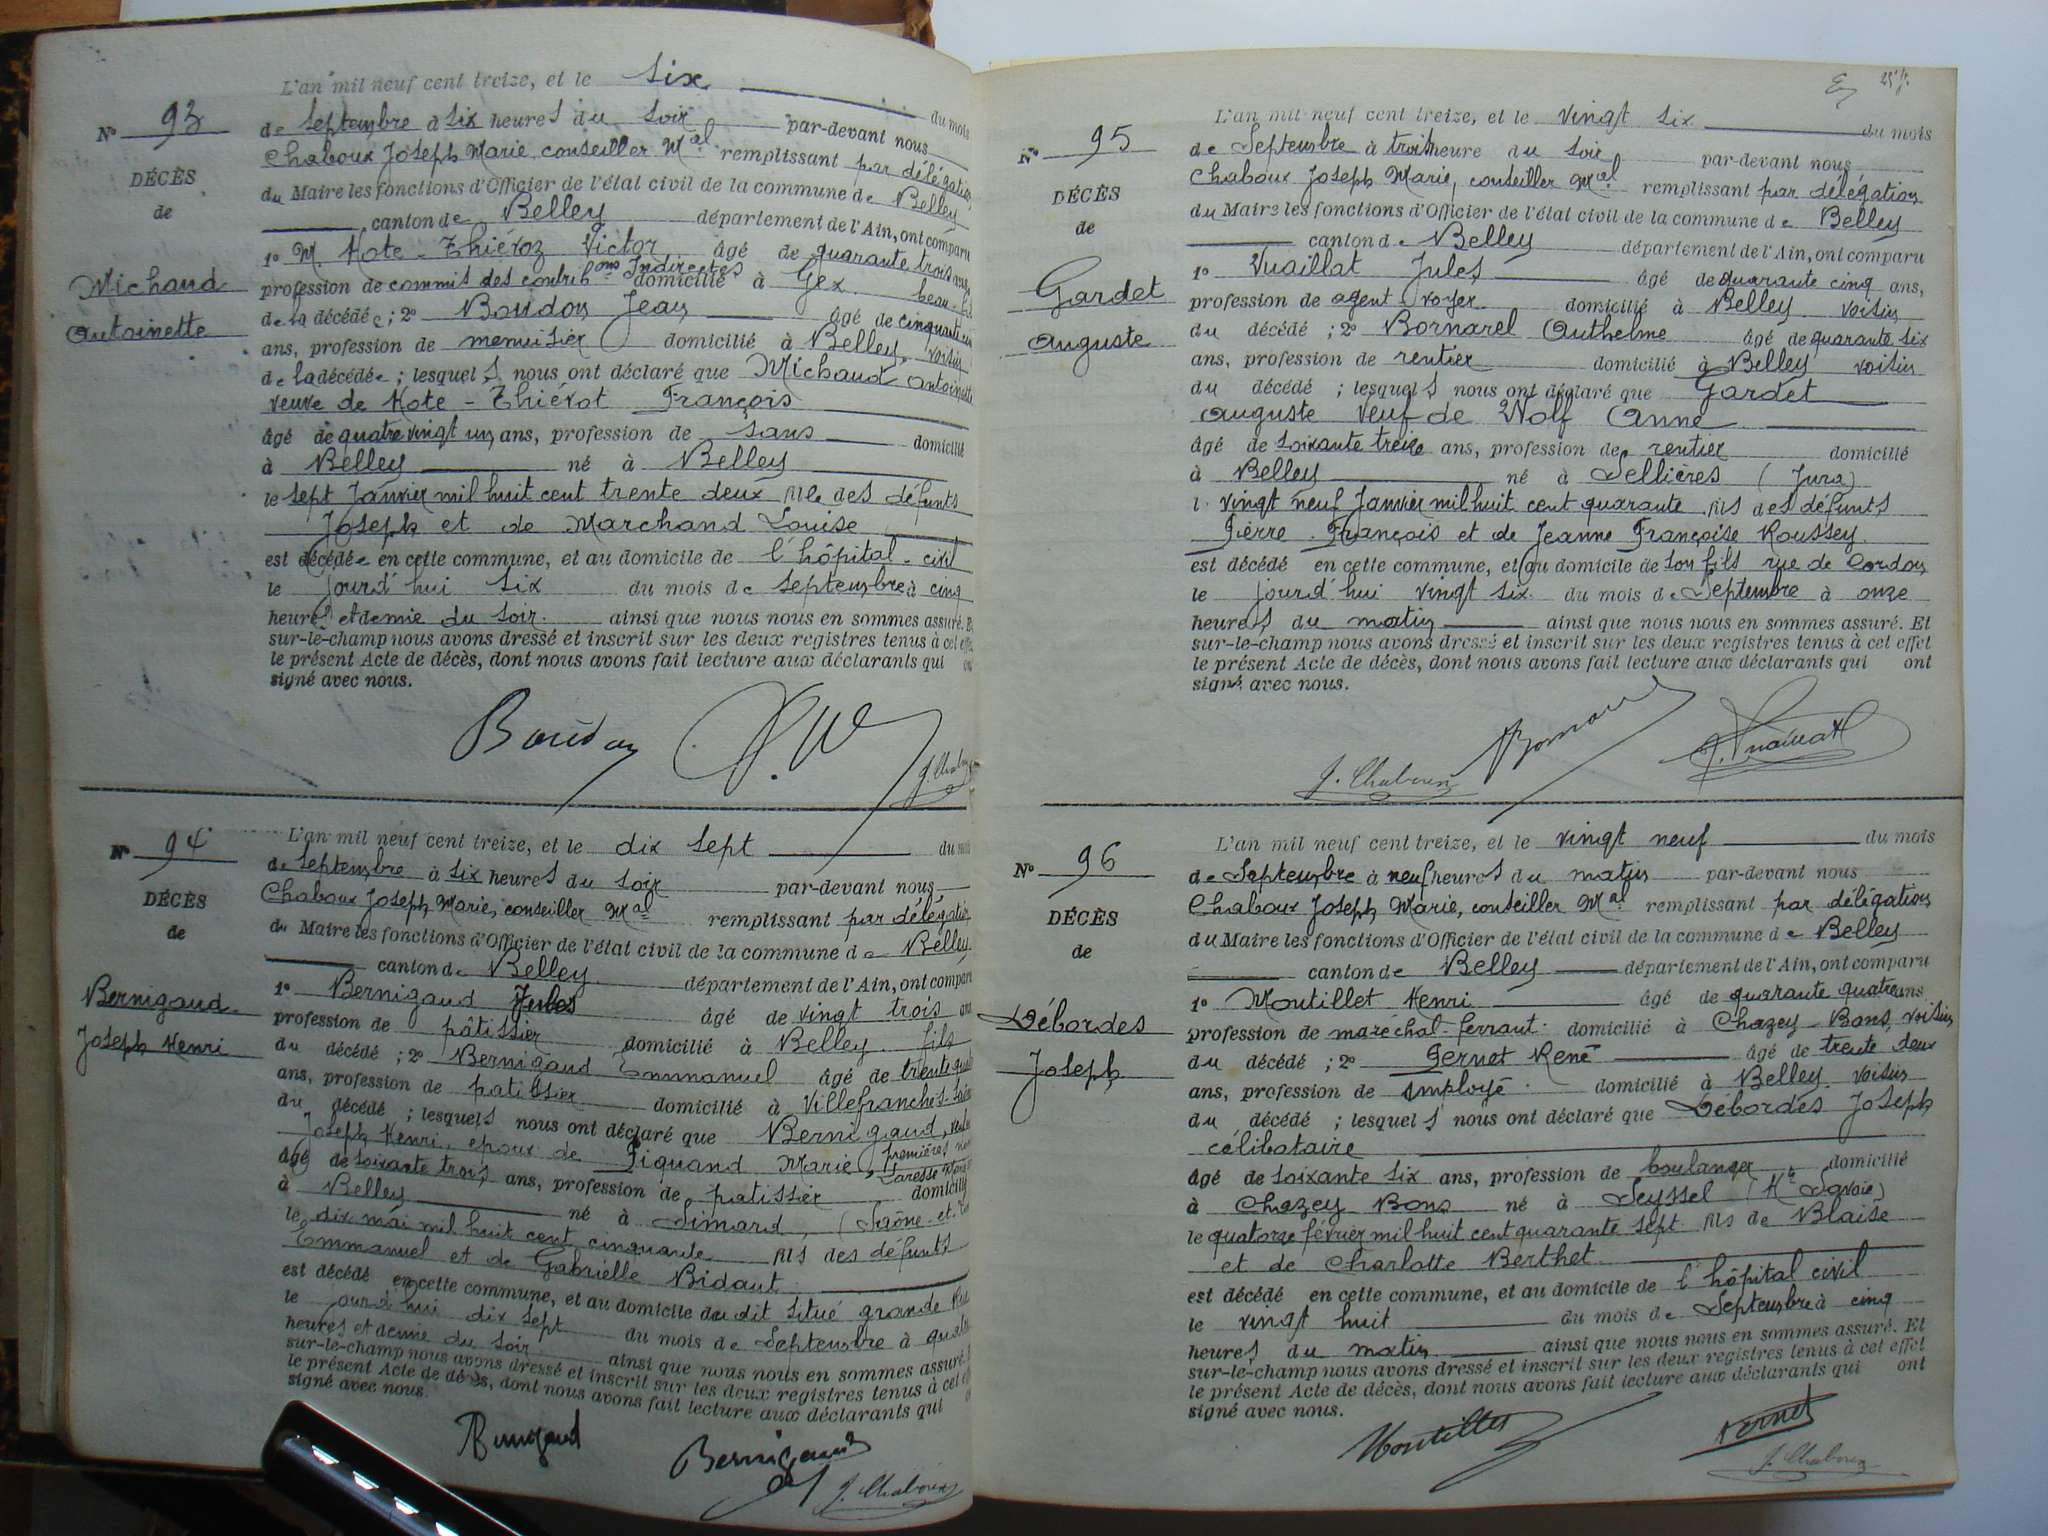 L'an mil neuf cent treize, et le six
du mois
N° 93
de septembre à six heures du soir par-devant nous
Chaboux Joseph Marie, conseiller Mal remplissant par délégation
DÉCÈS
du Maire les fonctions d'Officier de l'état civil de la commune de Belley
de
canton de Belley département de l'Ain, ont comparu
1° M. Kote-Thiévoz Victor âgé de quarante trois ans,
Michaud
profession de commis des contribons Indirectes domicilié à Gex beau-fils
de la décédée; 2° Boudon Jean âgé de cinquante
Antoinette
ans, profession de menuisier domicilié à Belley, voisin
de la décédée; lesquels nous ont déclaré que Michaud Antoinette
veuve de Kote-Thiévot François
âgé de quatre vingt un ans, profession de sans domicilié
à Belley né à Belley
le sept Janvier mil huit cent trente deux fille des défunts
Joseph et de Marchand Louise
est décédée en cette commune, et au domicile de l'hôpital-civil
le jourd'hui six du mois de septembre à cinq
heures et demie du soir. ainsi que nous nous en sommes assuré. Et
sur-le-champ nous avons dressé et inscrit sur les deux registres tenus à cet effet
le présent Acte de décès, dont nous avons fait lecture aux déclarants qui ont
signé avec nous.
Boudon
J. Chaboux
L'an mil neuf cent treize, et le dix sept du mois
N° 94
de septembre à six heures du soir par-devant nous
Chaboux Joseph Marie, conseiller Mal remplissant par délégation
DÉCÈS
du Maire les fonctions d'Officier de l'état civil de la commune de Belley
de
canton de Belley département de l'Ain, ont comparu
1° Bernigaud Jules âgé de vingt trois ans
Bernigaud
profession de pâtissier domicilié à Belley fils
Joseph Henri
du décédé; 2° Bernigaud Emmanuel âgé de trente
ans, profession de patissier domicilié à Villefranche
du décédé; lesquels nous ont déclaré que Bernigaud,
Joseph Henri, epoux de Piguand Marie, premières
âgé de soixante trois ans, profession de patissier domicilié
à Belley né à Simard, (Saône-et-
le dix mai mil huit cent cinquante fils des défunts
Emmanuel et de Gabrielle Bidaut
est décédé en cette commune, et au domicile du dit situé grande Rue
le jourd'hui dix sept du mois de Septembre à quatre
heures et demie du soir. ainsi que nous nous en sommes assuré.
sur-le-champ nous avons dressé et inscrit sur les deux registres tenus à cet effet
le présent Acte de décès, dont nous avons fait lecture aux déclarants qui
signé avec nous.
Bernigaud
Bernigaud
J. Chaboux
L'an mil neuf cent treize, et le vingt six du mois
N° 95
de Septembre à trois heure du soir par-devant nous
Chaboux Joseph Marie, conseiller Mal remplissant par délégation
DÉCÈS
du Maire les fonctions d'Officier de l'état civil de la commune de Belley
de
canton de Belley département de l'Ain, ont comparu
1° Vuaillat Jules âgé de quarante cinq ans,
Gardet
profession de agent-voyer domicilié à Belley voisin
du décédé; 2° Bornarel Anthelme âgé de quarante six
Auguste
ans, profession de rentier domicilié à Belley voisin
du décédé; lesquels nous ont déclaré que Gardet
Auguste veuf de Wolf Anne
âgé de soixante treize ans, profession de rentier domicilié
à Belley né à Sellières (Jura)
l vingt neuf Janvier mil huit cent quarante fils des défunts
Pierre-François et de Jeanne Françoise Roussey
est décédé en cette commune, et au domicile de son fils rue de Cordon
le jourd'hui vingt six du mois de Septembre à onze
heures du matin ainsi que nous nous en sommes assuré. Et
sur-le-champ nous avons dressé et inscrit sur les deux registres tenus à cet effet
le présent Acte de décès, dont nous avons fait lecture aux déclarants qui ont
signé avec nous.
J. Chaboux
Bornarel
J. Vuaillat
L'an mil neuf cent treize, et le vingt neuf du mois
N° 96
de Septembre à neuf heures du matin par-devant nous
Chaboux Joseph Marie, conseiller Mal remplissant par délégation
DÉCÈS
du Maire les fonctions d'Officier de l'état civil de la commune de Belley
de
canton de Belley département de l'Ain, ont comparu
1° Montillet Henri âgé de quarante quatre ans
Débordes
profession de maréchal-ferrant domicilié à Chazey-Bons, voisin
du décédé; 2° Pernet René âgé de trente deux
Joseph
ans, profession de Employé domicilié à Belley. voisin
du décédé; lesquels nous ont déclaré que Débordes Joseph
célibataire
âgé de soixante six ans, profession de boulanger domicilié
à Chazey Bons né à Seyssel (Hte Savoie)
le quatorze février mil huit cent quarante sept fils de Blaise
et de Charlotte Berthet
est décédé en cette commune, et au domicile de l'hôpital civil
le vingt huit du mois de Septembre à cinq
heures du matin ainsi que nous nous en sommes assuré. Et
sur-le-champ nous avons dressé et inscrit sur les deux registres tenus à cet effet
le présent Acte de décès, dont nous avons fait lecture aux déclarants qui ont
signé avec nous.
Montillet
Pernet
J. Chaboux